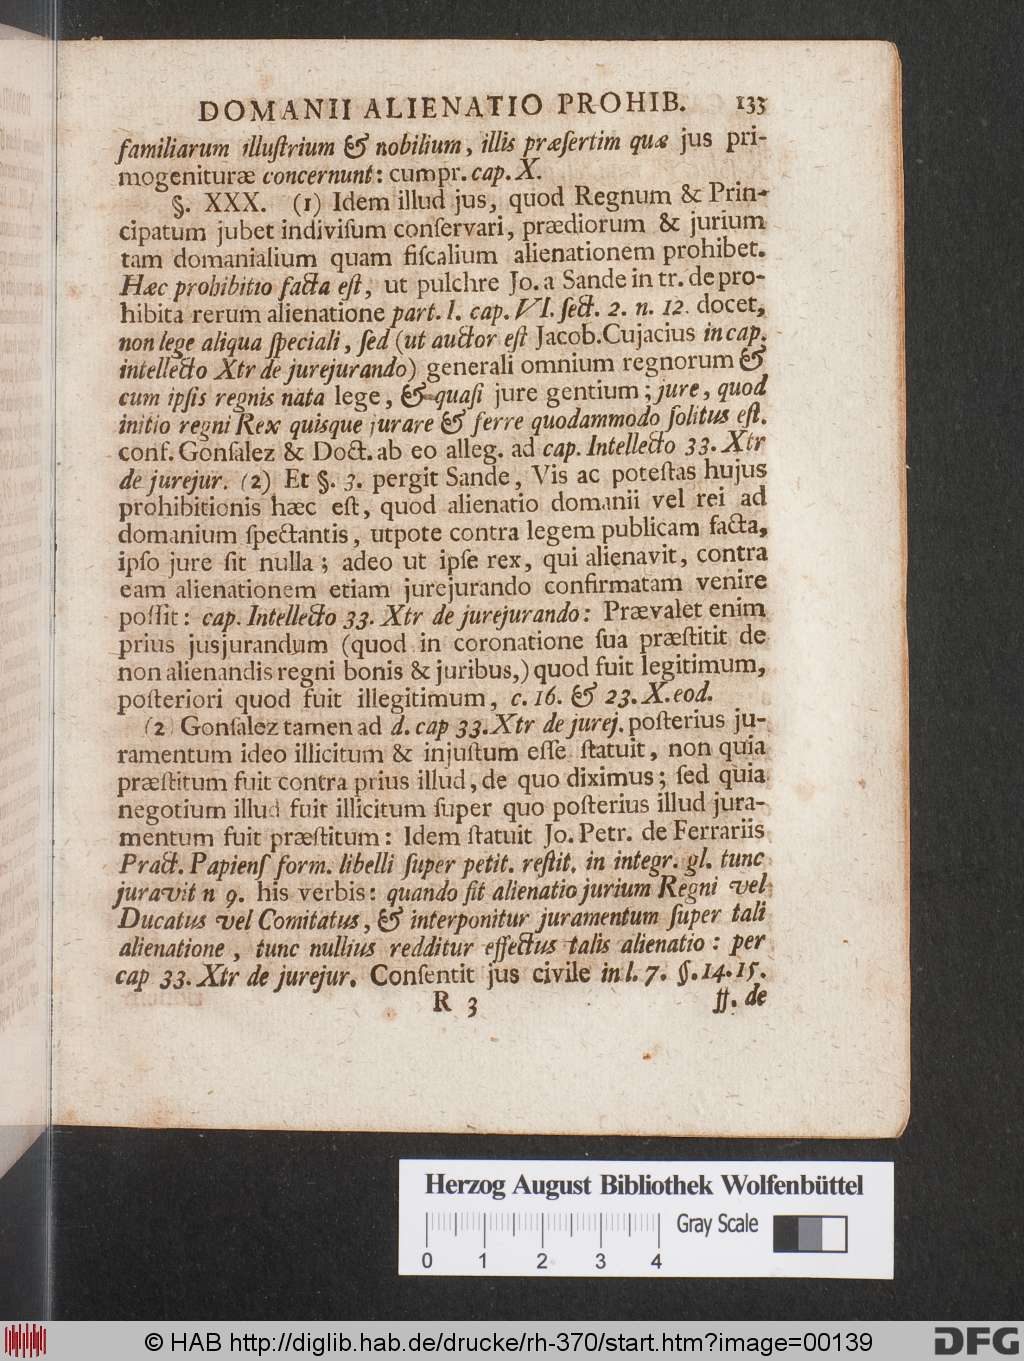 DOMANII ALIENATIO PROHIB. 133
familiarum illuſtrium & nobilium, illis præſertim quæ jus pri-
mogenituræ concernunt: cumpr. cap. X.
§. XXX. (1) Idem illud jus, quod Regnum & Prin-
cipatum jubet indiviſum conſervari, prædiorum & jurium
tam domanialium quam fiſcalium alienationem prohibet.
Hæc prohibitio facta eſt, ut pulchre Jo. a Sande in tr. de pro-
hibita rerum alienatione part. I. cap. VI. ſect. 2. n. 12. docet,
non lege aliqua ſpeciali, ſed (ut auctor eſt Jacob. Cujacius in cap.
intellecto Xtr de jurejurando) generali omnium regnorum &
cum ipſis regnis nata lege, & quaſi jure gentium; jure, quod
initio regni Rex quisque jurare & ferre quodammodo ſolitus eſt.
conf. Gonſalez & Doct. ab eo alleg. ad cap. Intellecto 33. Xtr
de jurejur. (2) Et §. 3. pergit Sande, Vis ac poteſtas hujus
prohibitionis hæc eſt, quod alienatio domanii vel rei ad
domanium ſpectantis, utpote contra legem publicam facta,
ipſo jure ſit nulla; adeo ut ipſe rex, qui alienavit, contra
eam alienationem etiam jurejurando confirmatam venire
poſſit: cap. Intellecto 33. Xtr de jurejurando: Prævalet enim
prius jusjurandum (quod in coronatione ſua præſtitit de
non alienandis regni bonis & juribus,) quod fuit legitimum,
poſteriori quod fuit illegitimum, c. 16. & 23. X. eod.
(2) Gonſalez tamen ad d. cap 33. Xtr de jurej. poſterius ju-
ramentum ideo illicitum & injuſtum eſſe ſtatuit, non quia
præſtitum fuit contra prius illud, de quo diximus; ſed quia
negotium illud fuit illicitum ſuper quo poſterius illud jura-
mentum fuit præſtitum: Idem ſtatuit Jo. Petr. de Ferrariis
Pract. Papienſ form. libelli ſuper petit. reſtit. in integr. gl. tunc
juravit n 9. his verbis: quando ſit alienatio jurium Regni vel
Ducatus vel Comitatus, & interponitur juramentum ſuper tali
alienatione, tunc nullius redditur effectus talis alienatio: per
cap 33. Xtr de jurejur. Conſentit jus civile in l. 7. §. 14. 15.
R 3 ff. de
Herzog August Bibliothek Wolfenbüttel
Gray Scale
0 1 2 3 4
© HAB http://diglib.hab.de/drucke/rh-370/start.htm?image=00139
DFG